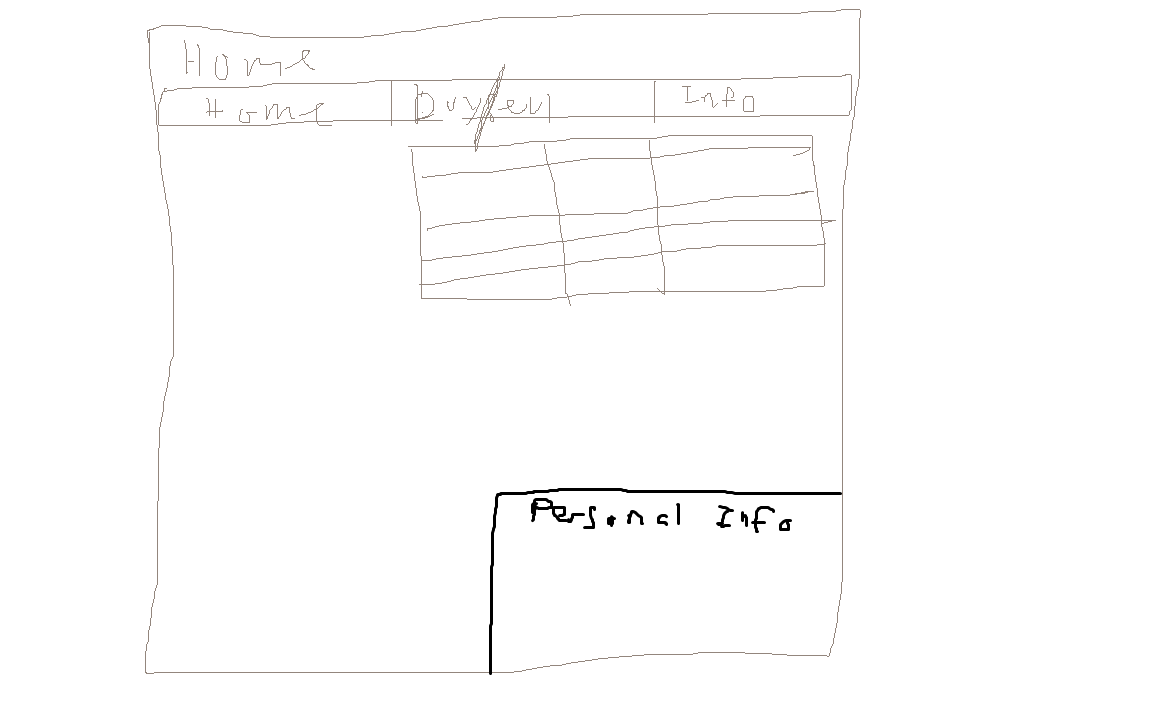 Home
Home Buy/Sell Info
Personal Info